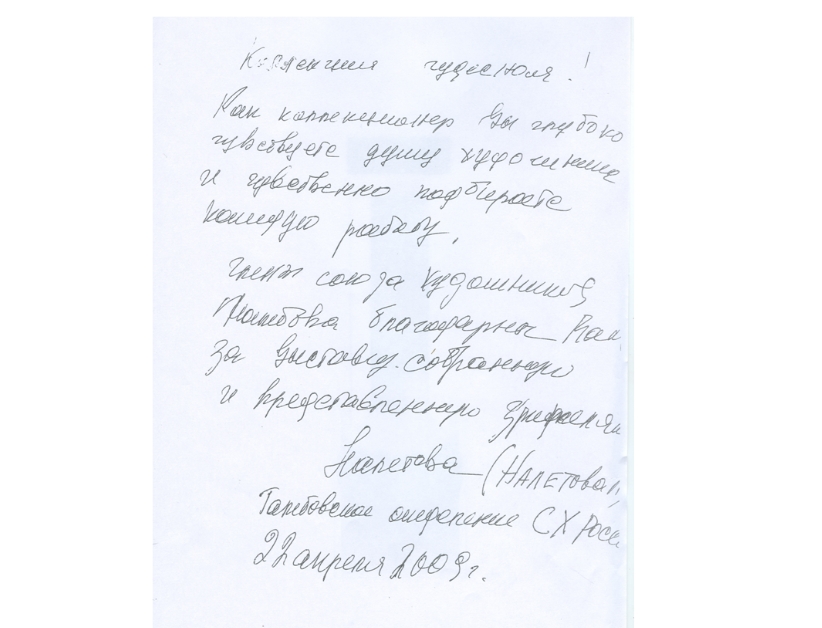 Коллекция чудесная!
Как коллекционер Вы глубоко
чувствуете душу художника
и чувственно подбираете
каждую работу.
Члены союза художников
Тамбова благодарны Вам
за выставку, собранную
и представленную зрителям
Налетова (НАЛЕТОВА
Тамбовское отделение СХ Росси
22 апреля 2009г.